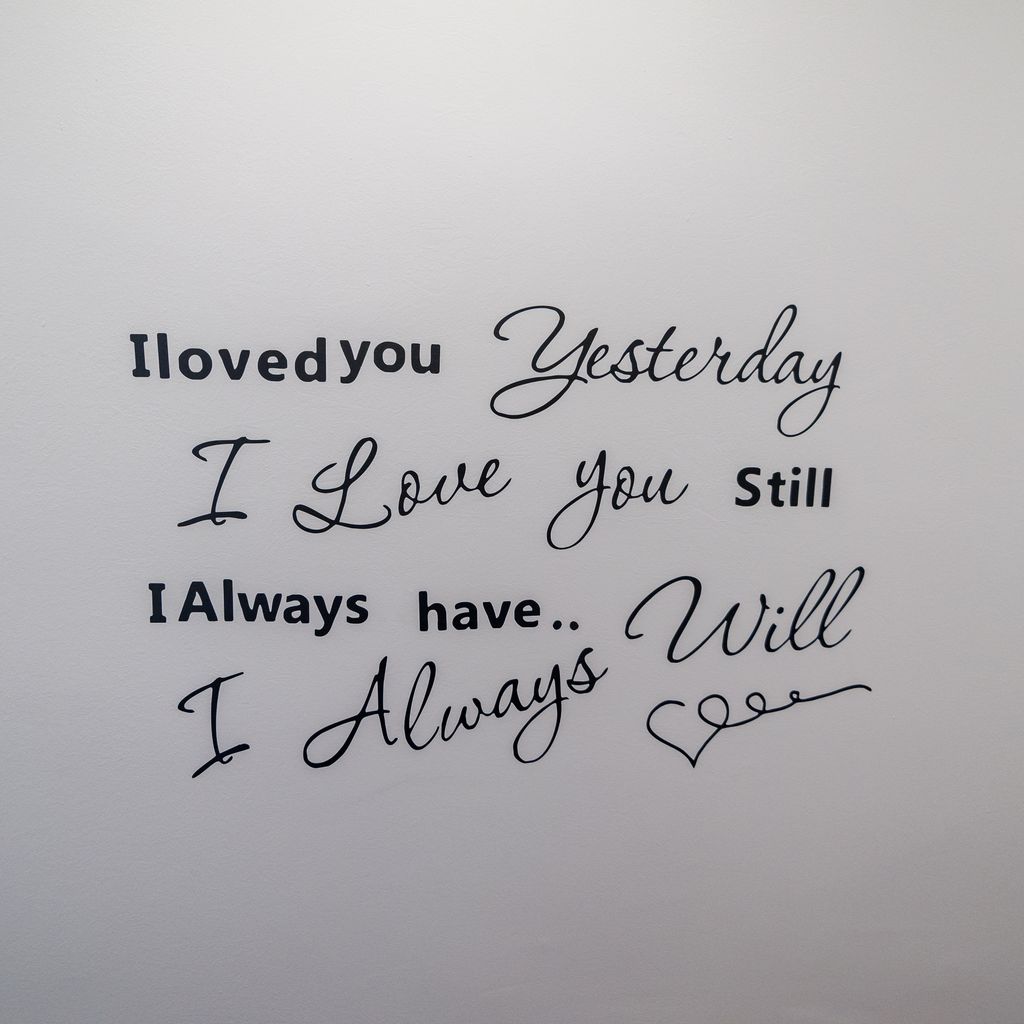 I loved you Yesterday
I Love you Still
I Always have..
I Always Will